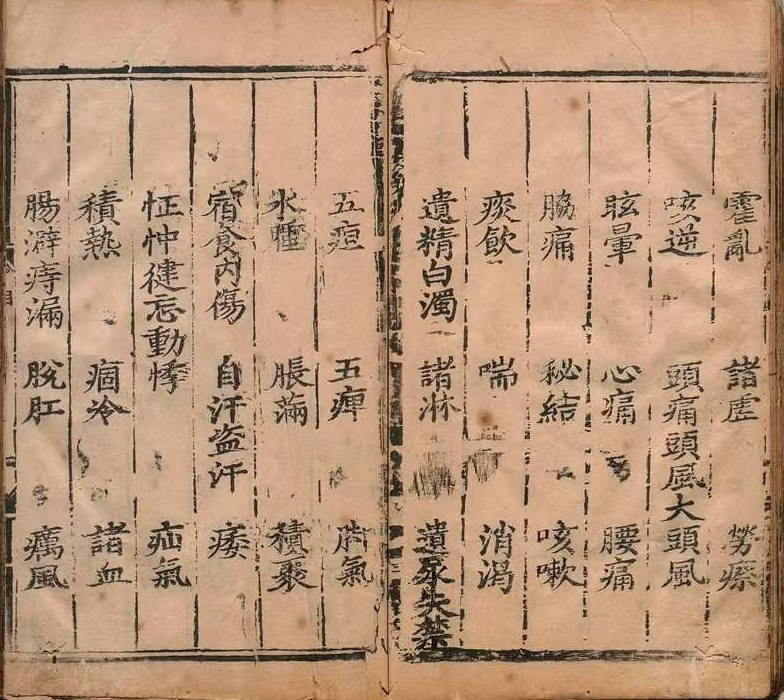 霍亂 諸虛 勞瘵
咳逆 頭痛頭風大頭風
眩暈 心痛 腰痛
脇痛 秘結 咳嗽
痰飲 喘 消渴
遺精白濁 諸淋 遺尿失禁
五疸 五痺 脚氣
水腫 脹滿 積聚
宿食内傷 自汗盜汗 痿
怔忡健忘動悸 疝氣
積熱 痼冷 諸血
腸澼痔漏 脫肛 癘風